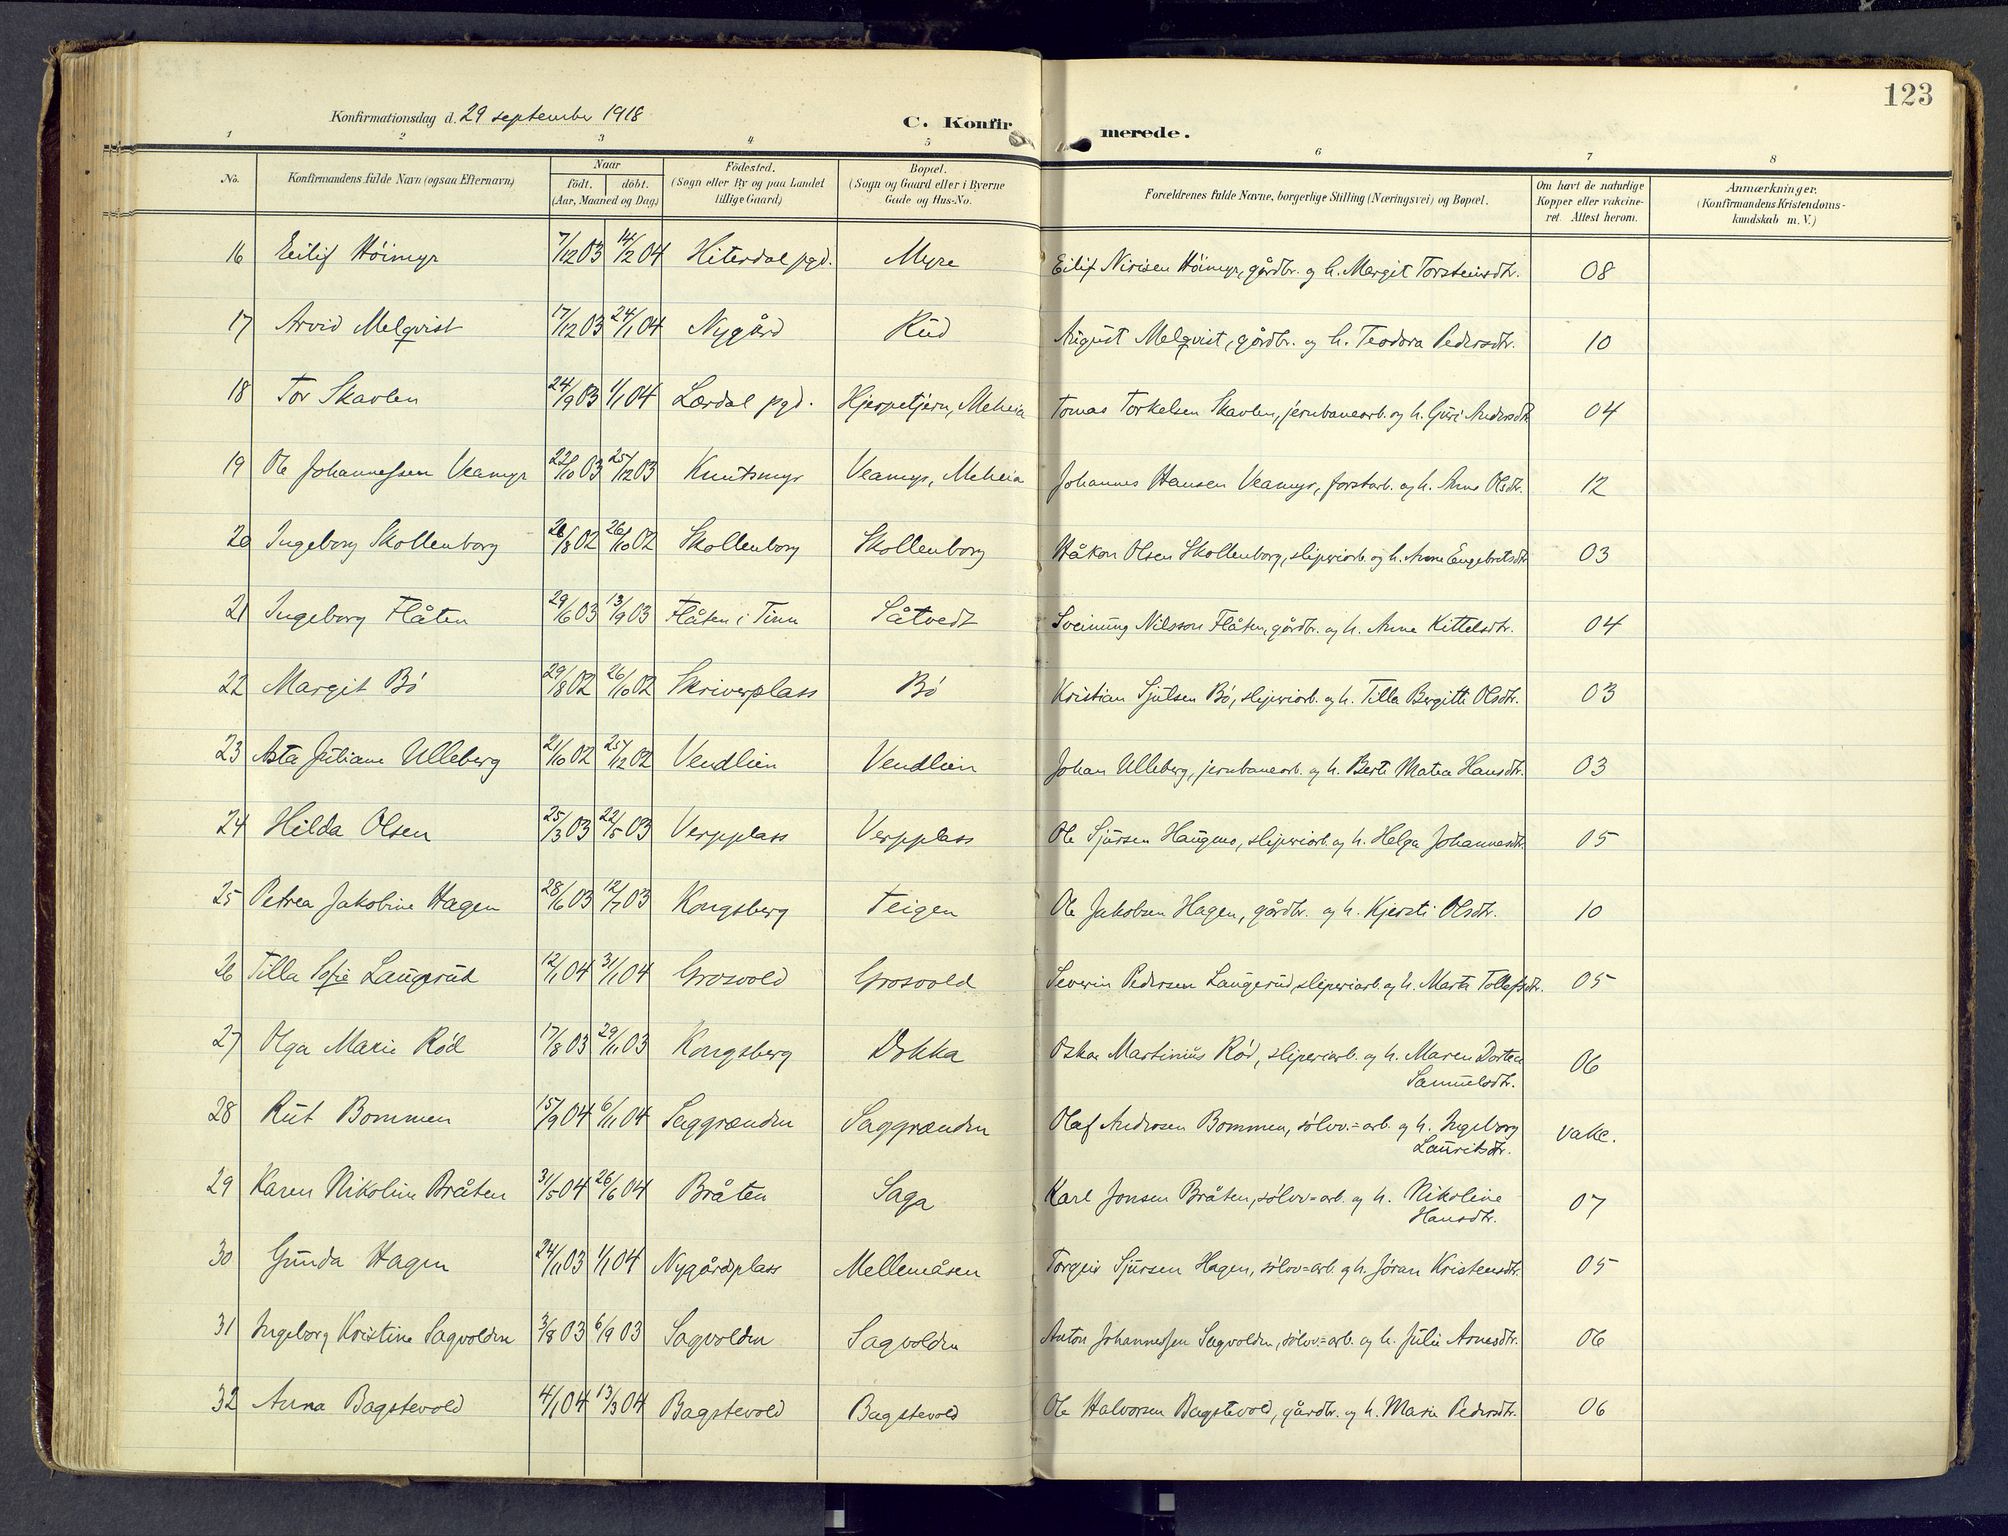 123
Konfirmationsdag d. 29 september 1918
C. Konfirmerede.
1 2 3 4 5 6 7 8
No.
Konfirmandens fulde Navn (ogsaa Efternavn)
Naar
födt. döbt.
(Aar, Maaned og Dag)
Födested.
(Sogn eller By og paa Landet
tillige Gaard)
Bopæl.
(Sogn og Gaard eller i Byerne
Gade og Hus-No.
Forældrenes fulde Navne, borgerlige Stilling (Næringsvei) og Bopæl.
Om havt de naturlige
Kopper eller vakcine-
ret. Attest herom.
Anmærkninger.
(Konfirmandens Kristendoms-
kundskab m. V.)
16 Eilif Höimyr 7/12 03 14/2 04 Hiterdal pgd. Myre Eilif Nirisen Höimyr, gårdbr. og h. Margit Torsteinsdtr. 08
17 Arvid Melqvist 17/12 03 24/1 04 Nygård Rud August Melqvist, gårdbr. og h. Teodora Pedersdtr. 10
18 Tor Skavlen 24/9 03 1/1 04 Lærdal pgd. Hjerpetjern, Meheia Tomas Torkelsen Skavlen, jernbanearb. og h. Guri Andersdtr. 04
19 Ole Johannessen Veamyr 22/10 03 25/12 03 Knutsmyr Veamyr, Meheia Johannes Hansen Veamyr, forstarb. og h. Anne Olsdtr. 12
20 Ingeborg Skollenborg 28/8 02 26/10 02 Skollenborg Skollenborg Håkon Olsen Skollenborg, sliperiarb. og h. Anne Engebretsdtr. 03
21 Ingeborg Flåten 29/6 03 13/9 03 Flåten i Tinn Såtvedt Sveinung Nilsson Flåten, gårdbr. og h. Anne Kittelsdtr. 04
22 Margit Bö 29/8 02 26/10 02 Skriverplass Bö Kristian Sjulsen Bö, sliperiarb. og h. Tilla Bergitte Olsdtr. 03
23 Asta Juliane Ulleberg 21/10 02 25/12 02 Vendlien Vendlien Johan Ulleberg, jernbanearb. og h. Berte Matea Hansdtr. 03
24 Hilda Olsen 25/3 03 22/5 03 Verpplass Verpplass Ole Sjursen Haugmo, sliperiarb. og h. Helga Johannesdtr. 05
25 Petrea Jakobine Hagen 28/6 03 12/7 03 Kongsberg Teigen Ole Jakobsen Hagen, gårdbr. og h. Kjersti Olsdtr. 10
26 Tilla Sofie Laugerud 12/1 04 31/1 04 Grosvold Grosvold Severin Pedersen Laugerud, sliperiarb. og h. Marte Tollefsdtr. 05
27 Olga Marie Röd 17/8 03 29/11 03 Kongsberg Dokka Oskar Martinius Röd, sliperiarb. og h. Maren Dorten
Samuelsdtr. 06
28 Rut Bommen 15/9 04 6/11 04 Saggrænden Saggrænden Olaf Andersen Bommen, sölvv.=arb. og h. Ingeborg
Lauritsdtr. vakc.
29 Karen Nikoline Bråten 31/5 04 26/6 04 Bråten Saga Karl Jonsen Bråten, sölvv=arb. og h. Nikoline
Hansdtr. 07
30 Gunda Hagen 24/11 03 1/1 04 Nygårdsplass Mellemåsen Torgeir Sjursen Hagen, sölvv=arb. og h. Jöran Kristensdtr. 05
31 Ingeborg Kristine Sagvolden 3/8 03 6/9 03 Sagvolden Sagvolden Anton Johannessen Sagvolden, sölvv.=arb. og h. Julie Arnesdtr. 06
32 Anna Bagstevold 4/1 04 13/3 04 Bagstevold Bagstevold Ole Halvorsen Bagstevold, gårdbr. og h. Marie Pedersdtr. 06